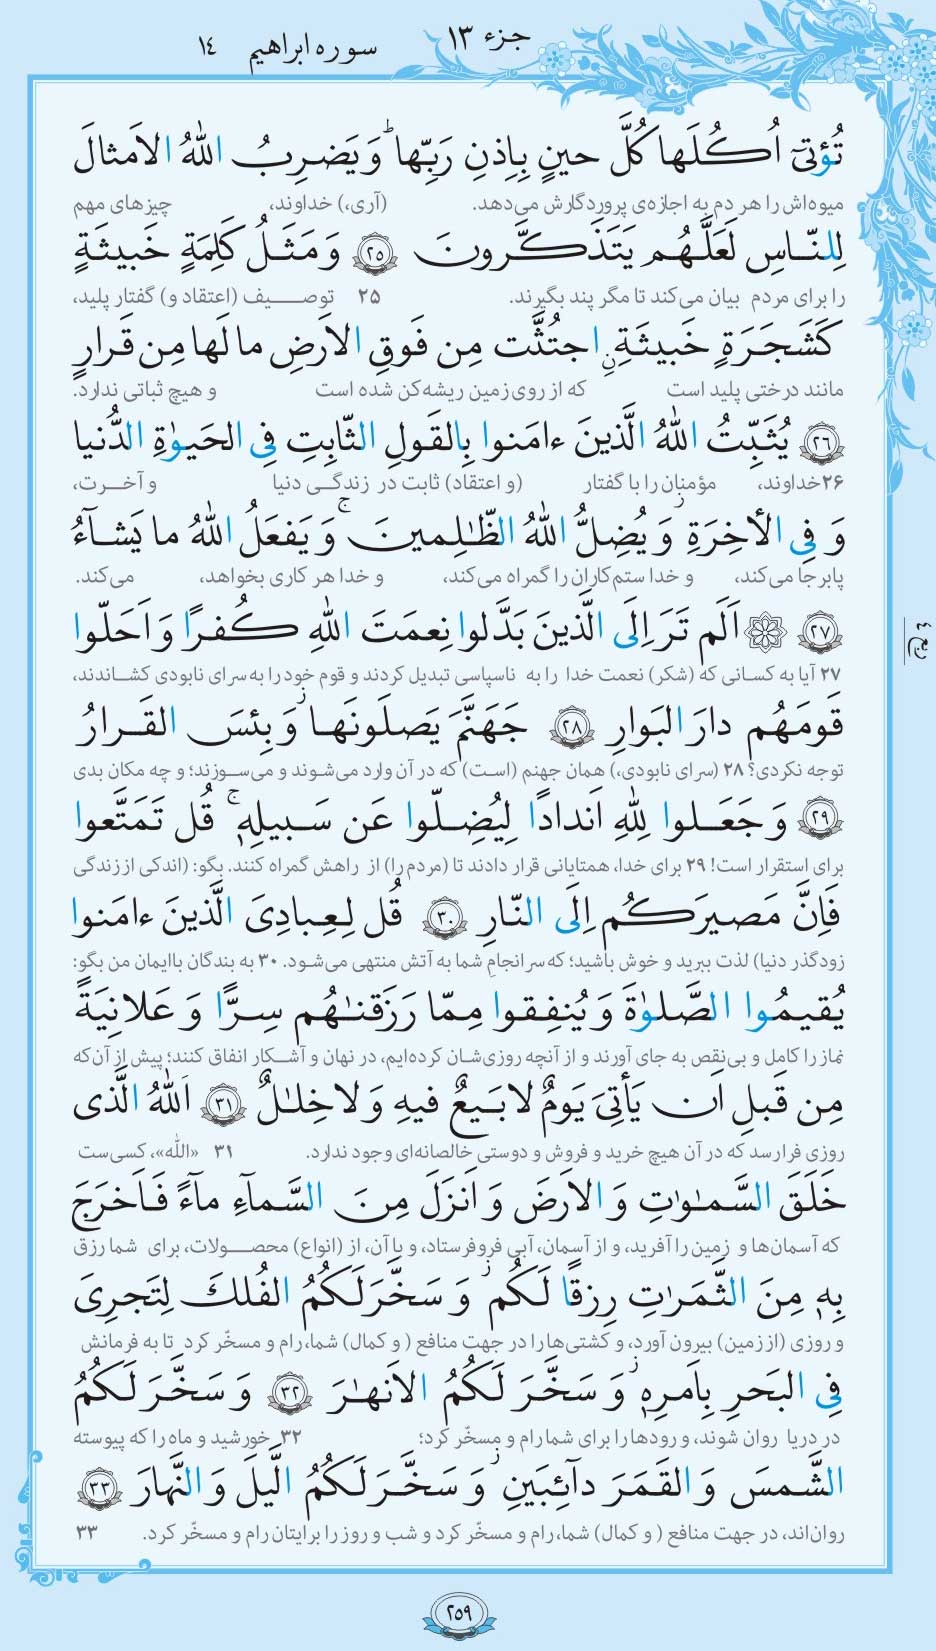 جزء ۱۳
سوره ابراهیم ۱٤
تُؤتیٓ اُکُلَها کُلَّ حینٍ بِاِذنِ رَبِّها ۗ وَ یَضرِبُ اللّٰهُ الاَمثالَ
میوه‌اش را هر دم به اجازه‌ی پروردگارش می‌دهد. (آری،) خداوند، چیزهای مهم
لِلنّاسِ لَعَلَّهُم یَتَذَکَّرونَ ﴿۲۵﴾ وَ مَثَلُ کَلِمَةٍ خَبیثَةٍ
را برای مردم بیان می‌کند تا مگر پند بگیرند. ۲۵ توصیف (اعتقاد و) گفتار پلید،
کَشَجَرَةٍ خَبیثَةِنِ اجتُثَّت مِن فَوقِ الاَرضِ ما لَها مِن قَرارٍ
مانند درختی پلید است که از روی زمین ریشه‌کن شده است و هیچ ثباتی ندارد.
﴿۲۶﴾ یُثَبِّتُ اللّٰهُ الَّذینَ ءامَنوا بِالقَولِ الثّابِتِ فِی الحَیوٰةِ الدُّنیا
۲۶ خداوند، مؤمنان را با گفتار (و اعتقاد) ثابت در زندگی دنیا و آخرت،
وَ فِی الأخِرَةِ ۖ وَ یُضِلُّ اللّٰهُ الظّٰلِمینَ ۚ وَ یَفعَلُ اللّٰهُ ما یَشآءُ
پابرجا می‌کند، و خدا ستم‌کاران را گمراه می‌کند، و خدا هر کاری بخواهد، می‌کند.
﴿۲۷﴾ ۞ اَلَم تَرَ اِلَی الَّذینَ بَدَّلوا نِعمَتَ اللّٰهِ کُفرًا وَ اَحَلّوا
۲۷ آیا به کسانی که (شکر) نعمت خدا را به ناسپاسی تبدیل کردند و قوم خود را به سرای نابودی کشاندند،
قَومَهُم دارَ البَوارِ ﴿۲۸﴾ جَهَنَّمَ یَصلَونَها ۖ وَ بِئسَ القَرارُ
توجه نکردی؟ ۲۸ (سرای نابودی،) همان جهنم (است) که در آن وارد می‌شوند و می‌سوزند؛ و چه مکان بدی
﴿۲۹﴾ وَ جَعَلوا لِلّٰهِ اَندادًا لِیُضِلّوا عَن سَبیلِهٖ ۚ قُل تَمَتَّعوا
برای استقرار است! ۲۹ برای خدا، همتایانی قرار دادند تا (مردم را) از راهش گمراه کنند. بگو: (اندکی از زندگی
فَاِنَّ مَصیرَکُم اِلَی النّارِ ﴿۳۰﴾ قُل لِعِبادِیَ الَّذینَ ءامَنوا
زودگذر دنیا) لذت ببرید و خوش باشید؛ که سرانجامِ شما به آتش منتهی می‌شود. ۳۰ به بندگان باایمان من بگو:
یُقیمُوا الصَّلوٰةَ وَ یُنفِقوا مِمّا رَزَقنٰهُم سِرًّا وَ عَلانِیَةً
نماز را کامل و بی‌نقص به جای آورند و از آنچه روزی‌شان کرده‌ایم، در نهان و آشکار انفاق کنند؛ پیش از آن‌که
مِن قَبلِ اَن یَأتِیَ یَومٌ لا بَیعٌ فیهِ وَ لا خِلٰلٌ ﴿۳۱﴾ اَللّٰهُ الَّذی
روزی فرارسد که در آن هیچ خرید و فروش و دوستی خالصانه‌ای وجود ندارد. ۳۱ «اللّٰه»، کسی‌ست
خَلَقَ السَّمٰوٰتِ وَ الاَرضَ وَ اَنزَلَ مِنَ السَّمآءِ مآءً فَاَخرَجَ
که آسمان‌ها و زمین را آفرید، و از آسمان، آبی فروفرستاد، و با آن، از (انواع) محصولات، برای شما رزق
بِهٖ مِنَ الثَّمَرٰتِ رِزقًا لَکُم ۖ وَ سَخَّرَ لَکُمُ الفُلکَ لِتَجرِیَ
و روزی (از زمین) بیرون آورد، و کشتی‌ها را در جهت منافع ( و کمال) شما، رام و مسخّر کرد تا به فرمانش
فِی البَحرِ بِاَمرِهٖ ۖ وَ سَخَّرَ لَکُمُ الاَنهٰرَ ﴿۳۲﴾ وَ سَخَّرَ لَکُمُ
در دریا روان شوند، و رودها را برای شما رام و مسخّر کرد؛ ۳۲ خورشید و ماه را که پیوسته
الشَّمسَ وَ القَمَرَ دآئِبَینِ ۖ وَ سَخَّرَ لَکُمُ الَّیلَ وَ النَّهارَ ﴿۳۳﴾
روان‌اند، در جهت منافع ( و کمال) شما، رام و مسخّر کرد و شب و روز را برایتان رام و مسخّر کرد. ۳۳
ربع ٤
۲۵۹